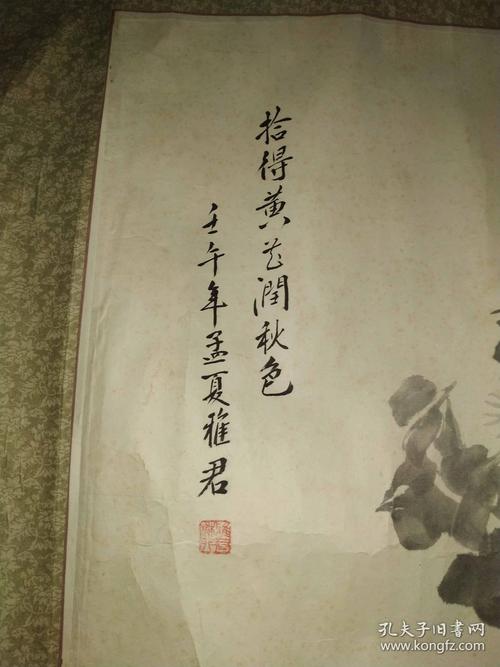 拾得黄花潤秋色
壬午年孟夏雅君
孔夫子旧书网
www.kongfz.com